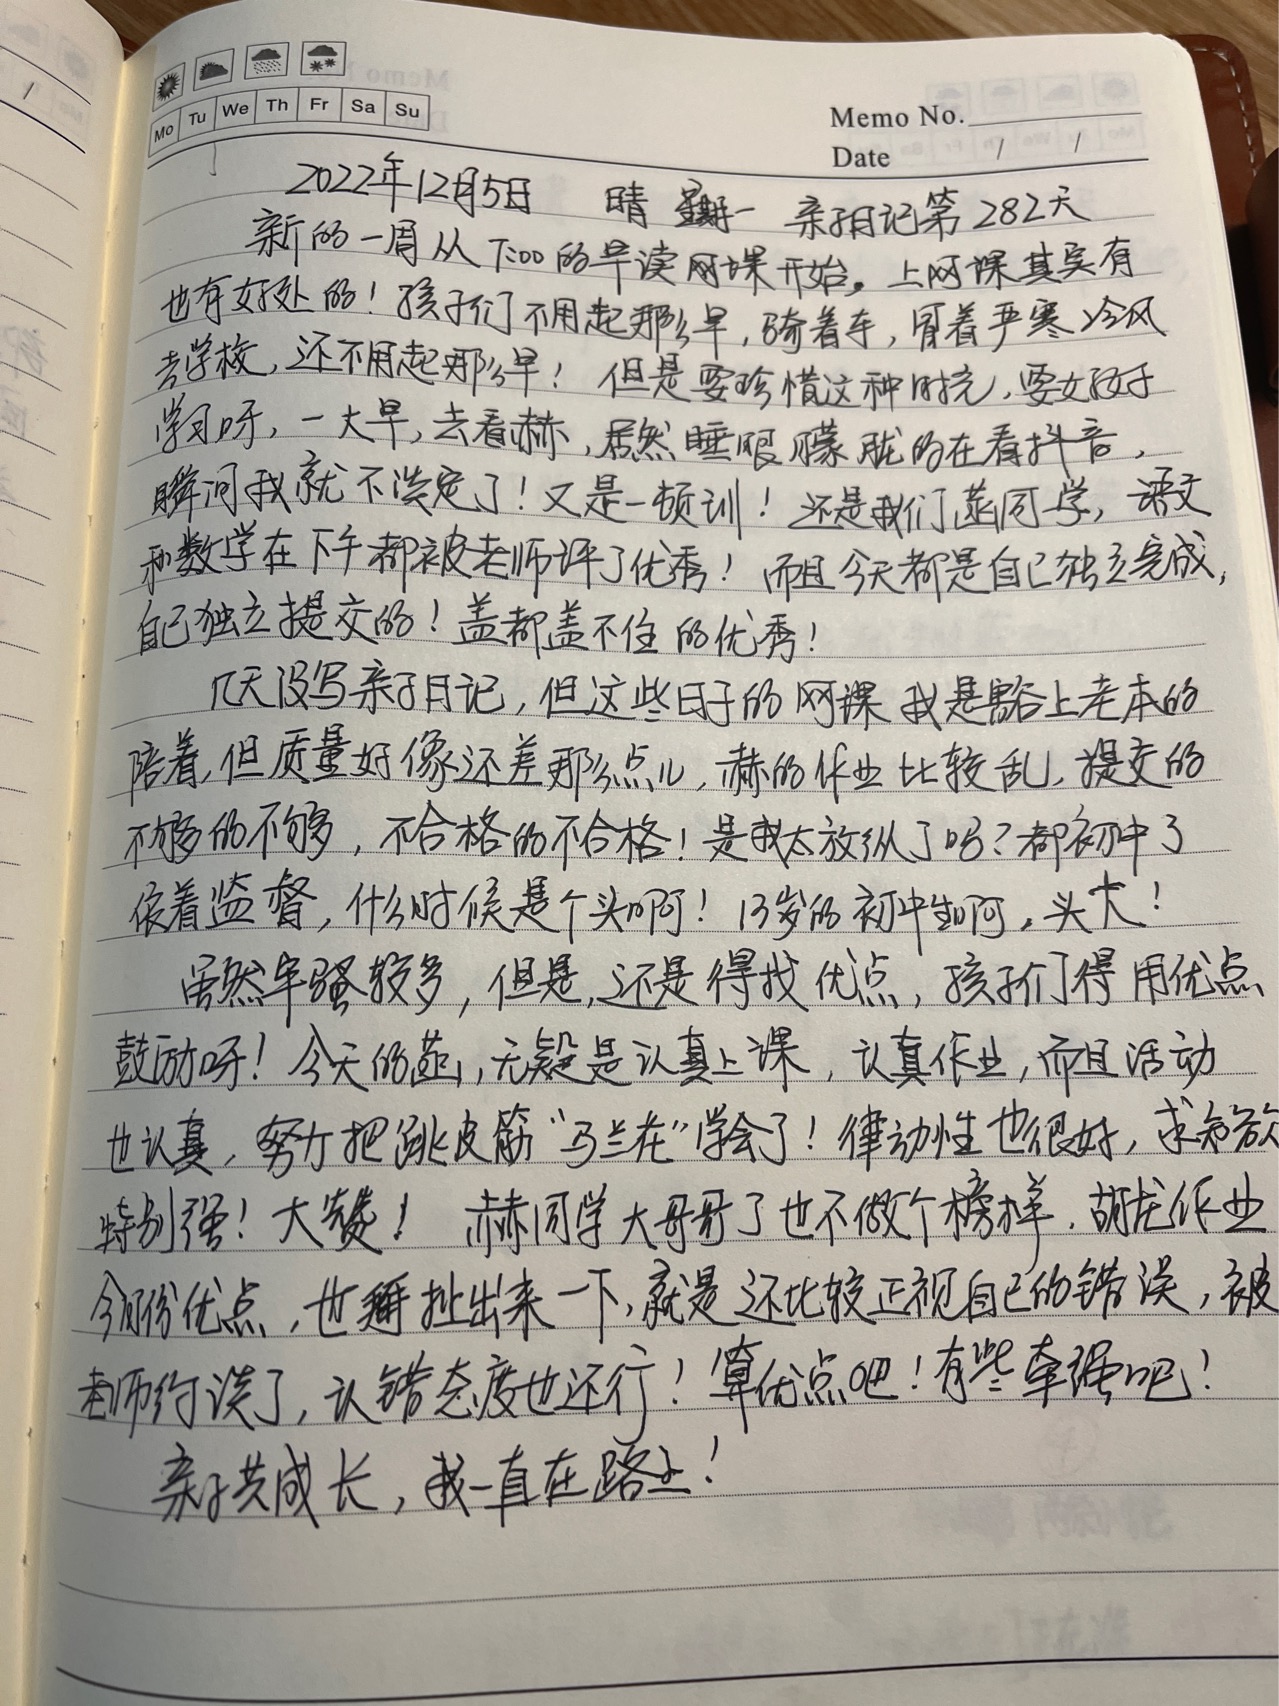 Mo Tu We Th Fr Sa Su
Memo No.
Date / /
2022年12月5日 晴 星期一 亲子日记第282天
新的一周从7:00的早读网课开始。上网课其实有
也有好处的！孩子们不用起那么早，骑着车，冒着严寒冷风
去学校，还不用起那么早！但是要珍惜这种时光，要好好
学习呀，一大早，去看赫，居然睡眼朦胧的在看抖音，
瞬间我就不淡定了！又是一顿训！还是我们菡同学，语文
和数学在下午都被老师评了优秀！而且今天都是自己独立完成，
自己独立提交的！盖都盖不住的优秀！
几天没写亲子日记，但这些日子的网课我是豁上老本的
陪着，但质量好像还差那么点儿，赫的作业比较乱，提交的
不够的不够，不合格的不合格！是我太放纵了吗？都初中了
依着监督，什么时候是个头啊！13岁的初中生啊，头大！
虽然牢骚较多，但是，还是得找优点，孩子们得用优点
鼓励呀！今天的菡，无疑是认真上课，认真作业，而且活动
也认真，努力把跳皮筋“马兰花”学会了！律动性也很好，求知欲
特别强！大赞！赫同学大哥哥了也不做个榜样，胡龙作业
今日份优点，也得扯出来一下，就是还比较正视自己的错误，被
老师约谈了，认错态度也还行！算优点吧！有些牵强吧！
亲子共成长，我一直在路上！